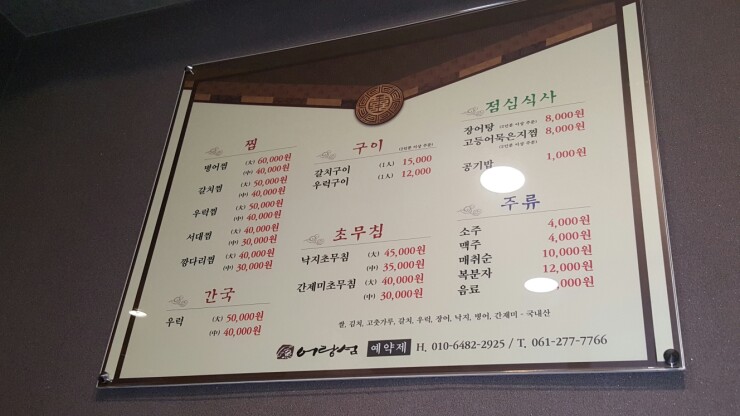 찜
병어찜 (大) 60,000원
(中) 40,000원
갈치찜 (大) 50,000원
(中) 40,000원
우럭찜 (大) 50,000원
(中) 40,000원
서대찜 (大) 40,000원
(中) 30,000원
깡다리찜 (大) 40,000원
(中) 30,000원
간국
우럭 (大) 50,000원
(中) 40,000원
구이 (2인분 이상 주문)
갈치구이 (1人) 15,000
우럭구이 (1人) 12,000
초무침
낙지초무침 (大) 45,000원
(中) 35,000원
간제미초무침 (大) 40,000원
(中) 30,000원
점심식사
장어탕 (2인분 이상 주문) 8,000원
고등어묵은지찜 8,000원
(2인분 이상 주문)
공기밥 1,000원
주류
소주 4,000원
맥주 4,000원
매취순 10,000원
복분자 12,000원
음료 ,000원
쌀, 김치, 고춧가루, 갈치, 우럭, 장어, 낙지, 병어, 간제미 - 국내산
어랑섬 예약제 H. 010-6482-2925 / T. 061-277-7766